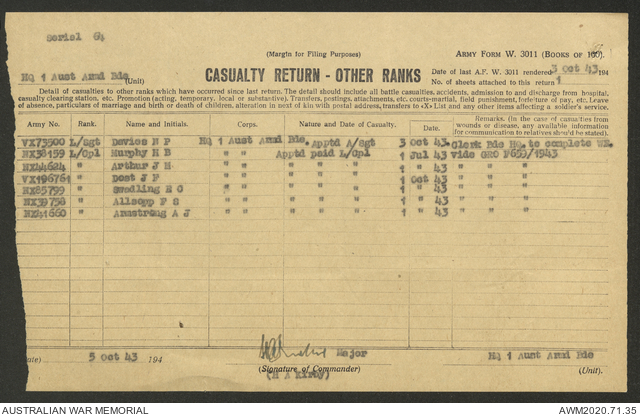 Serial 64
(Margin for Filing Purposes)
ARMY FORM W. 3011 (BOOKS OF 100).
HQ 1 Aust Armd Bde (Unit)
CASUALTY RETURN - OTHER RANKS
Date of last A.F. W. 3011 rendered 3 Oct 43 194
No. of sheets attached to this return 1
Detail of casualties to other ranks which have occurred since last return. The detail should include all battle casualties, accidents, admission to and discharge from hospital,
casualty clearing station, etc. Promotion (acting, temporary, local or substantive). Transfers, postings, attachments, etc. courts-martial, field punishment, forfeiture of pay, etc. Leave
of absence, particulars of marriage and birth or death of children, alteration in next of kin with postal address, transfers to «X» List and any other items affecting a soldier's service.
Army No. Rank. Name and Initials. Corps. Nature and Date of Casualty. Date. Remarks. (In the case of casualties from wounds or disease, any available information for communication to relatives should be stated).
VX73500 L/Sgt Davies N F HQ 1 Aust Armd Bde. Apptd A/Sgt 3 Oct 43. Clerk Bde HQ. to complete WE.
NX38159 L/Cpl Murphy N B " " Apptd paid L/Cpl 1 Jul 43 vide GRO F659/1943
NX44624 " Arthur J H " " " " 1 " 43 " " "
VX196761 " Dost J F " " " " 1 Oct 43 " " "
NX85799 " Swadling E C " " " " 1 " 43 " " "
NX39758 " Allsopp F S " " " " 1 " 43 " " "
NX41660 " Armstrong A J " " " " 1 " 43 " " "
5 Oct 43 194
Major
HQ 1 Aust Armd Bde
(Signature of Commander)
(Unit).
AUSTRALIAN WAR MEMORIAL
AWM2020.71.35